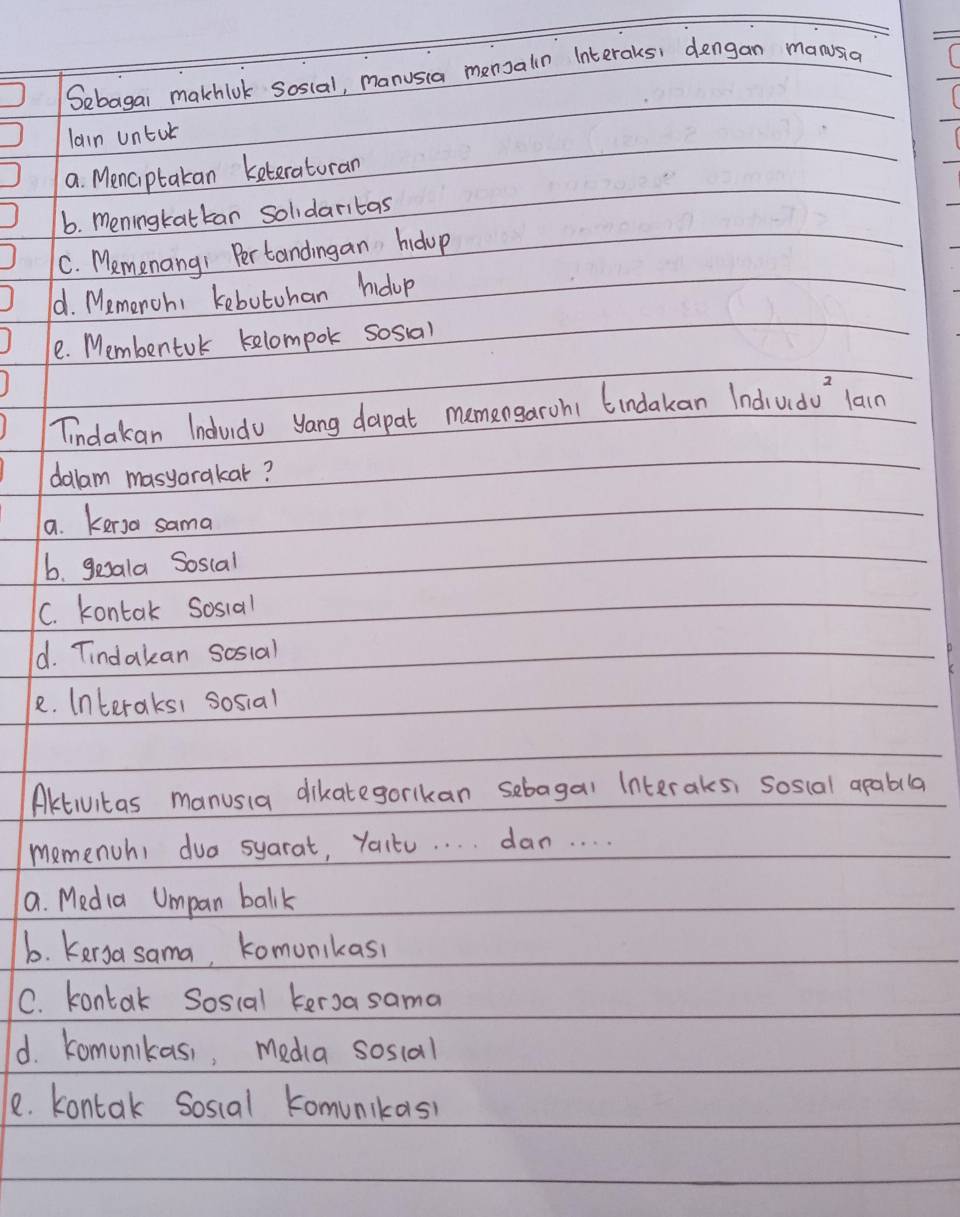 Sebagai makhluk sosial, manusia menjalin Interaksi dengan manusia
lain untuk
a. Menciptakan keteraturan
b. meningkatkan solidaritas
c. Memenangi Pertandingan hidup
d. Memenuhi kebutuhan hidup
e. Membentuk kelompok sosial
Tindakan Induidu yang dapat memengaruhi tindakan Individu² lain
dalam masyarakat?
a. kerja sama
b. gejala Sosial
c. kontak Sosial
d. Tindakan sosial
e. Interaksi sosial
Aktivitas manusia dikategorikan sebagai Interaksi sosial apabila
memenuhi dua syarat, Yaitu .... dan ....
a. Media Umpan balik
b. kerja sama, komunikasi
c. kontak Sosial kerja sama
d. komunikasi, media sosial
e. kontak Sosial komunikasi